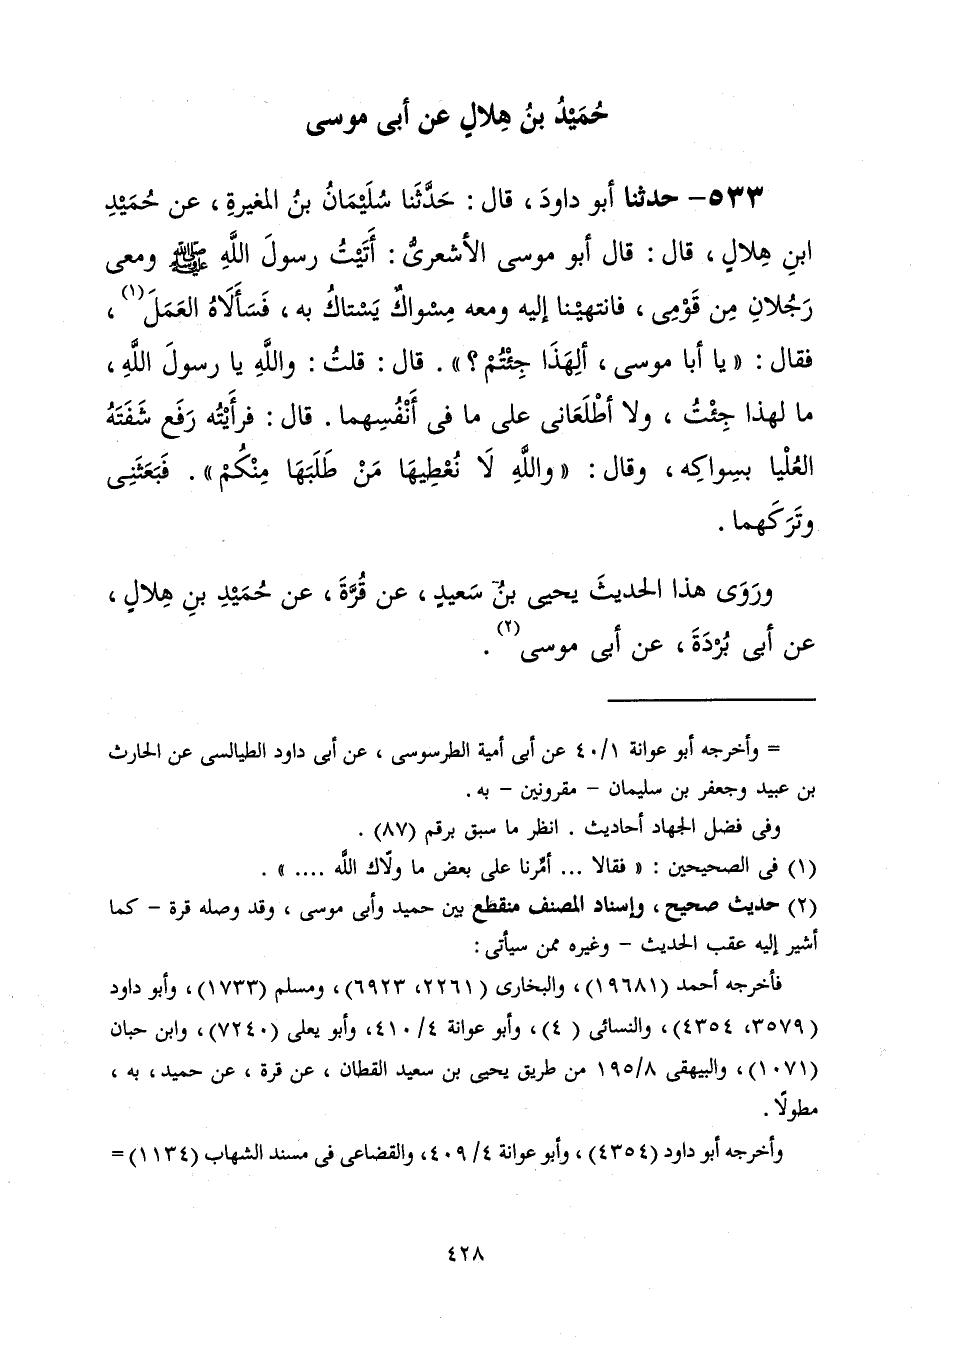 حُمَيْدُ بنُ هِلالٍ عن أبى موسى
٥٣٣- حدثنا أبو داودَ ، قال : حَدَّثَنا سُلَيْمَانُ بنُ المغيرةِ ، عن حُمَيْدِ
ابنِ هِلالٍ ، قال : قال أبو موسى الأشعرىُّ : أَتَيْتُ رسولَ اللَّهِ ﷺ ومعى
رَجُلانِ مِن قَوْمِى ، فانتهيْنا إليه ومعه مِسْواكٌ يَسْتاكُ به ، فَسَأَلَاهُ العَمَلَ(١) ،
فقال : « يا أبا موسى ، ألِهَذَا جِئْتُمْ ؟ » . قال : قلتُ : واللَّهِ يا رسولَ اللَّهِ ،
ما لهذا جِئْتُ ، ولا أطْلَعَانى على ما فى أَنْفُسِهما . قال : فرأيْتُه رَفَع شَفَتَهُ
العُلْيا بسِواكِه ، وقال : « واللَّهِ لَا نُعْطِيهَا مَنْ طَلَبَهَا مِنْكُمْ » . فَبَعَثَنِى
وتَرَكَهما .
ورَوَى هذا الحديثَ يحيى بنُ سَعيدٍ ، عن قُرَّةَ ، عن حُمَيْدِ بنِ هِلالٍ ،
عن أبى بُرْدَةَ ، عن أبى موسى(٢) .
= وأخرجه أبو عوانة ٤٠/١ عن أبى أمية الطرسوسى ، عن أبى داود الطيالسى عن الحارث
بن عبيد وجعفر بن سليمان - مقرونين - به .
وفى فضل الجهاد أحاديث . انظر ما سبق برقم (٨٧) .
(١) فى الصحيحين : « فقالا ... أمِّرنا على بعض ما ولَّاك اللَّه .... » .
(٢) حديث صحيح ، وإسناد المصنف منقطع بين حميد وأبى موسى ، وقد وصله قرة - كما
أشير إليه عقب الحديث - وغيره ممن سيأتى :
فأخرجه أحمد (١٩٦٨١) ، والبخارى (٢٢٦١، ٦٩٢٣) ، ومسلم (١٧٣٣) ، وأبو داود
(٣٥٧٩، ٤٣٥٤) ، والنسائى (٤) ، وأبو عوانة ٤١٠/٤ ، وأبو يعلى (٧٢٤٠) ، وابن حبان
(١٠٧١) ، والبيهقى ١٩٥/٨ من طريق يحيى بن سعيد القطان ، عن قرة ، عن حميد ، به ،
مطولًا .
وأخرجه أبو داود (٤٣٥٤) ، وأبو عوانة ٤٠٩/٤ ، والقضاعى فى مسند الشهاب (١١٣٤) =
٤٢٨